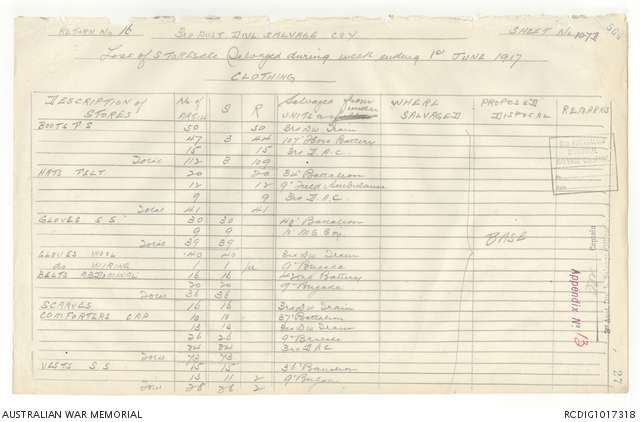 RETURN No 16 3RD AUST. DIVL SALVAGE COY. SHEET No 1072
Loss of STORES &c Salvaged during week ending 1st JUNE 1917
CLOTHING
DESCRIPTION of STORES No. of S R Salvaged from UNITS WHERE SALVAGED PROPOSED DISPOSAL REMARKS
BOOTS P S 50 50 3rd Div Train
47 3 44 107 Howr Battery
15 15 3rd D.A.C.
TOTAL 112 3 109
HATS FELT 20 20 34th Battalion
12 12 9th Field Ambulance
9 9 3rd D.A.C.
TOTAL 41 41
GLOVES S.S. 30 30 40th Battalion
9 9 M.G. Coy
TOTAL 39 39 BASE
GLOVES WOOL 40 40 3rd Div Train
do WIRING 1 1 pr 9th Brigade
BELTS ABDOMINAL 16 16 42nd Battery
20 20 9th Brigade
TOTAL 36 36
SCARVES 16 16 3rd Div Train
COMFORTERS CAP 10 10 37th Battalion
13 13 3rd Div Train
26 26 9th Brigade
24 24 3rd D.A.C
TOTAL 73 73
VESTS S.S 15 15 35th Battalion
13 11 2 9th Brigade
TOTAL 28 28 2
Captain
Appendix No. 13
AUSTRALIAN WAR MEMORIAL RCDIG1017318